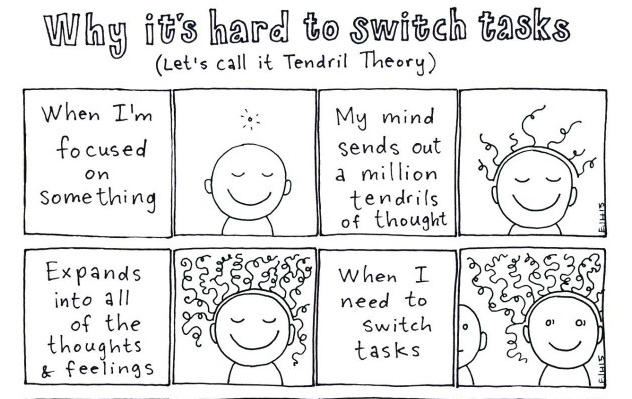 Why it's hard to switch tasks
(Let's call it Tendril Theory)
When I'm
focused
on
something
My mind
sends out
a million
tendrils
of thought
Expands
into all
of the
thoughts
& feelings
When I
need to
switch
tasks